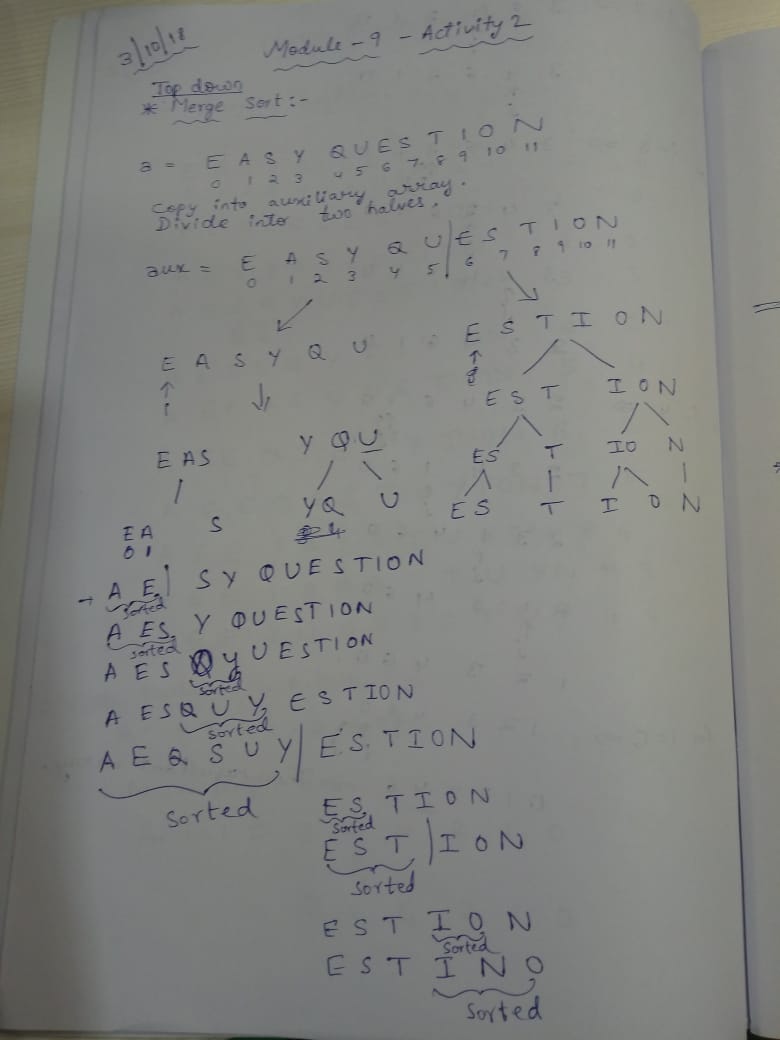 3/10/18
Module - 9 - Activity 2
Top down
* Merge Sort :-
a = E A S Y Q U E S T I O N
0 1 2 3 4 5 6 7 8 9 10 11
Copy into auxiliary array.
Divide into two halves.
aux = E A S Y Q U | E S T I O N
0 1 2 3 4 5 6 7 8 9 10 11
E A S Y Q U
E S T I O N
E S T
I O N
E AS
Y QU
ES
T
IO
N
EA
S
YQ
U
ES
T
I
O
N
0 1
→ A E | S Y QUESTION
sorted
A ES Y QUESTION
sorted
A E S Q Y U ESTION
sorted
A ESQUY ESTION
sorted
A E Q S U Y | ES TION
Sorted
ES TION
Sorted
E S T | I O N
Sorted
E S T I O N
Sorted
E S T I N O
Sorted